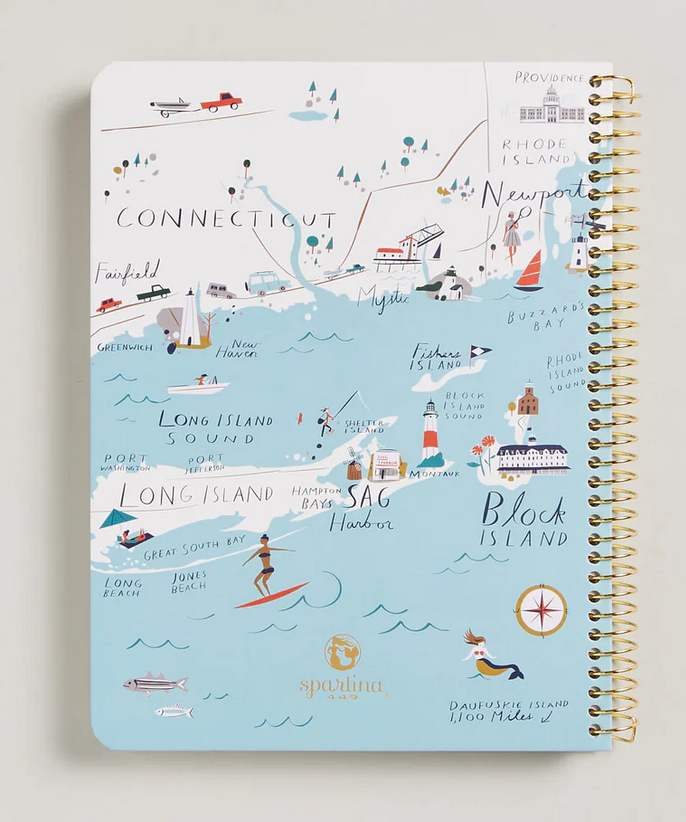 PROVIDENCE
RHODE
ISLAND
Newport
CONNECTICUT
Fairfield
Mystic
BUZZARD'S
BAY
GREENWICH
New
Haven
Fishers
ISLAND
RHODE
ISLAND
SOUND
BLOCK
ISLAND
SOUND
LONG ISLAND
SOUND
SHELTER
ISLAND
PORT
WASHINGTON
PORT
JEFFERSON
MONTAUK
LONG ISLAND
HAMPTON
BAYS
SAG
Harbor
Block
ISLAND
GREAT SOUTH BAY
LONG
BEACH
JONES
BEACH
spartina
449
DAUFUSKIE ISLAND
1,100 Miles